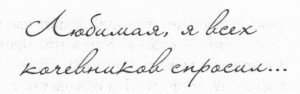 Любимая, я всех
кочевников спросил...